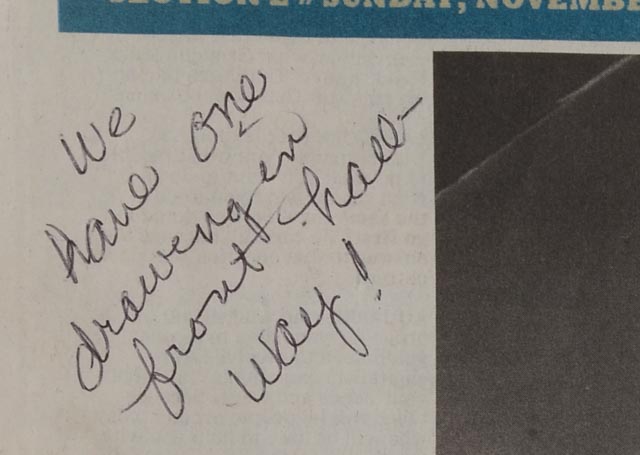 SECTION 2 // SUNDAY, NOVEMBE
We
have one
drawing in
front hall-
way!